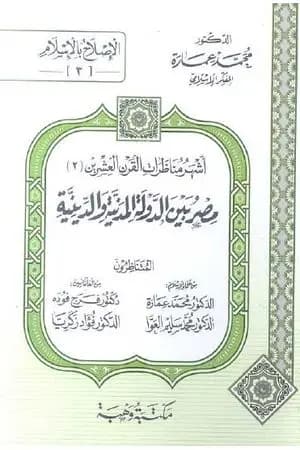 الدكتور
محمد عمارة
المفكر الإسلامي
الإصلاح بالإسلام
[٣]
أشهر مناظرات القرن العشرين (٢)
مصر بين الدولة المدنية والدينية
المتناظرون
الدكتور محمد عمارة
الدكتور محمد سليم العوا
من العلمانيين:
دكتور فرج فوده
الدكتور فؤاد زكريا
مكتبة وهبة